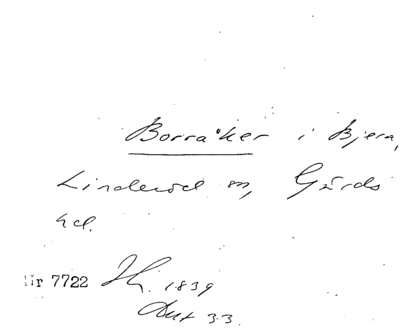 Borråker i Bjera,
Linderöd sn, Gärds
hd.
Nr 7722 1839
Akt 33.